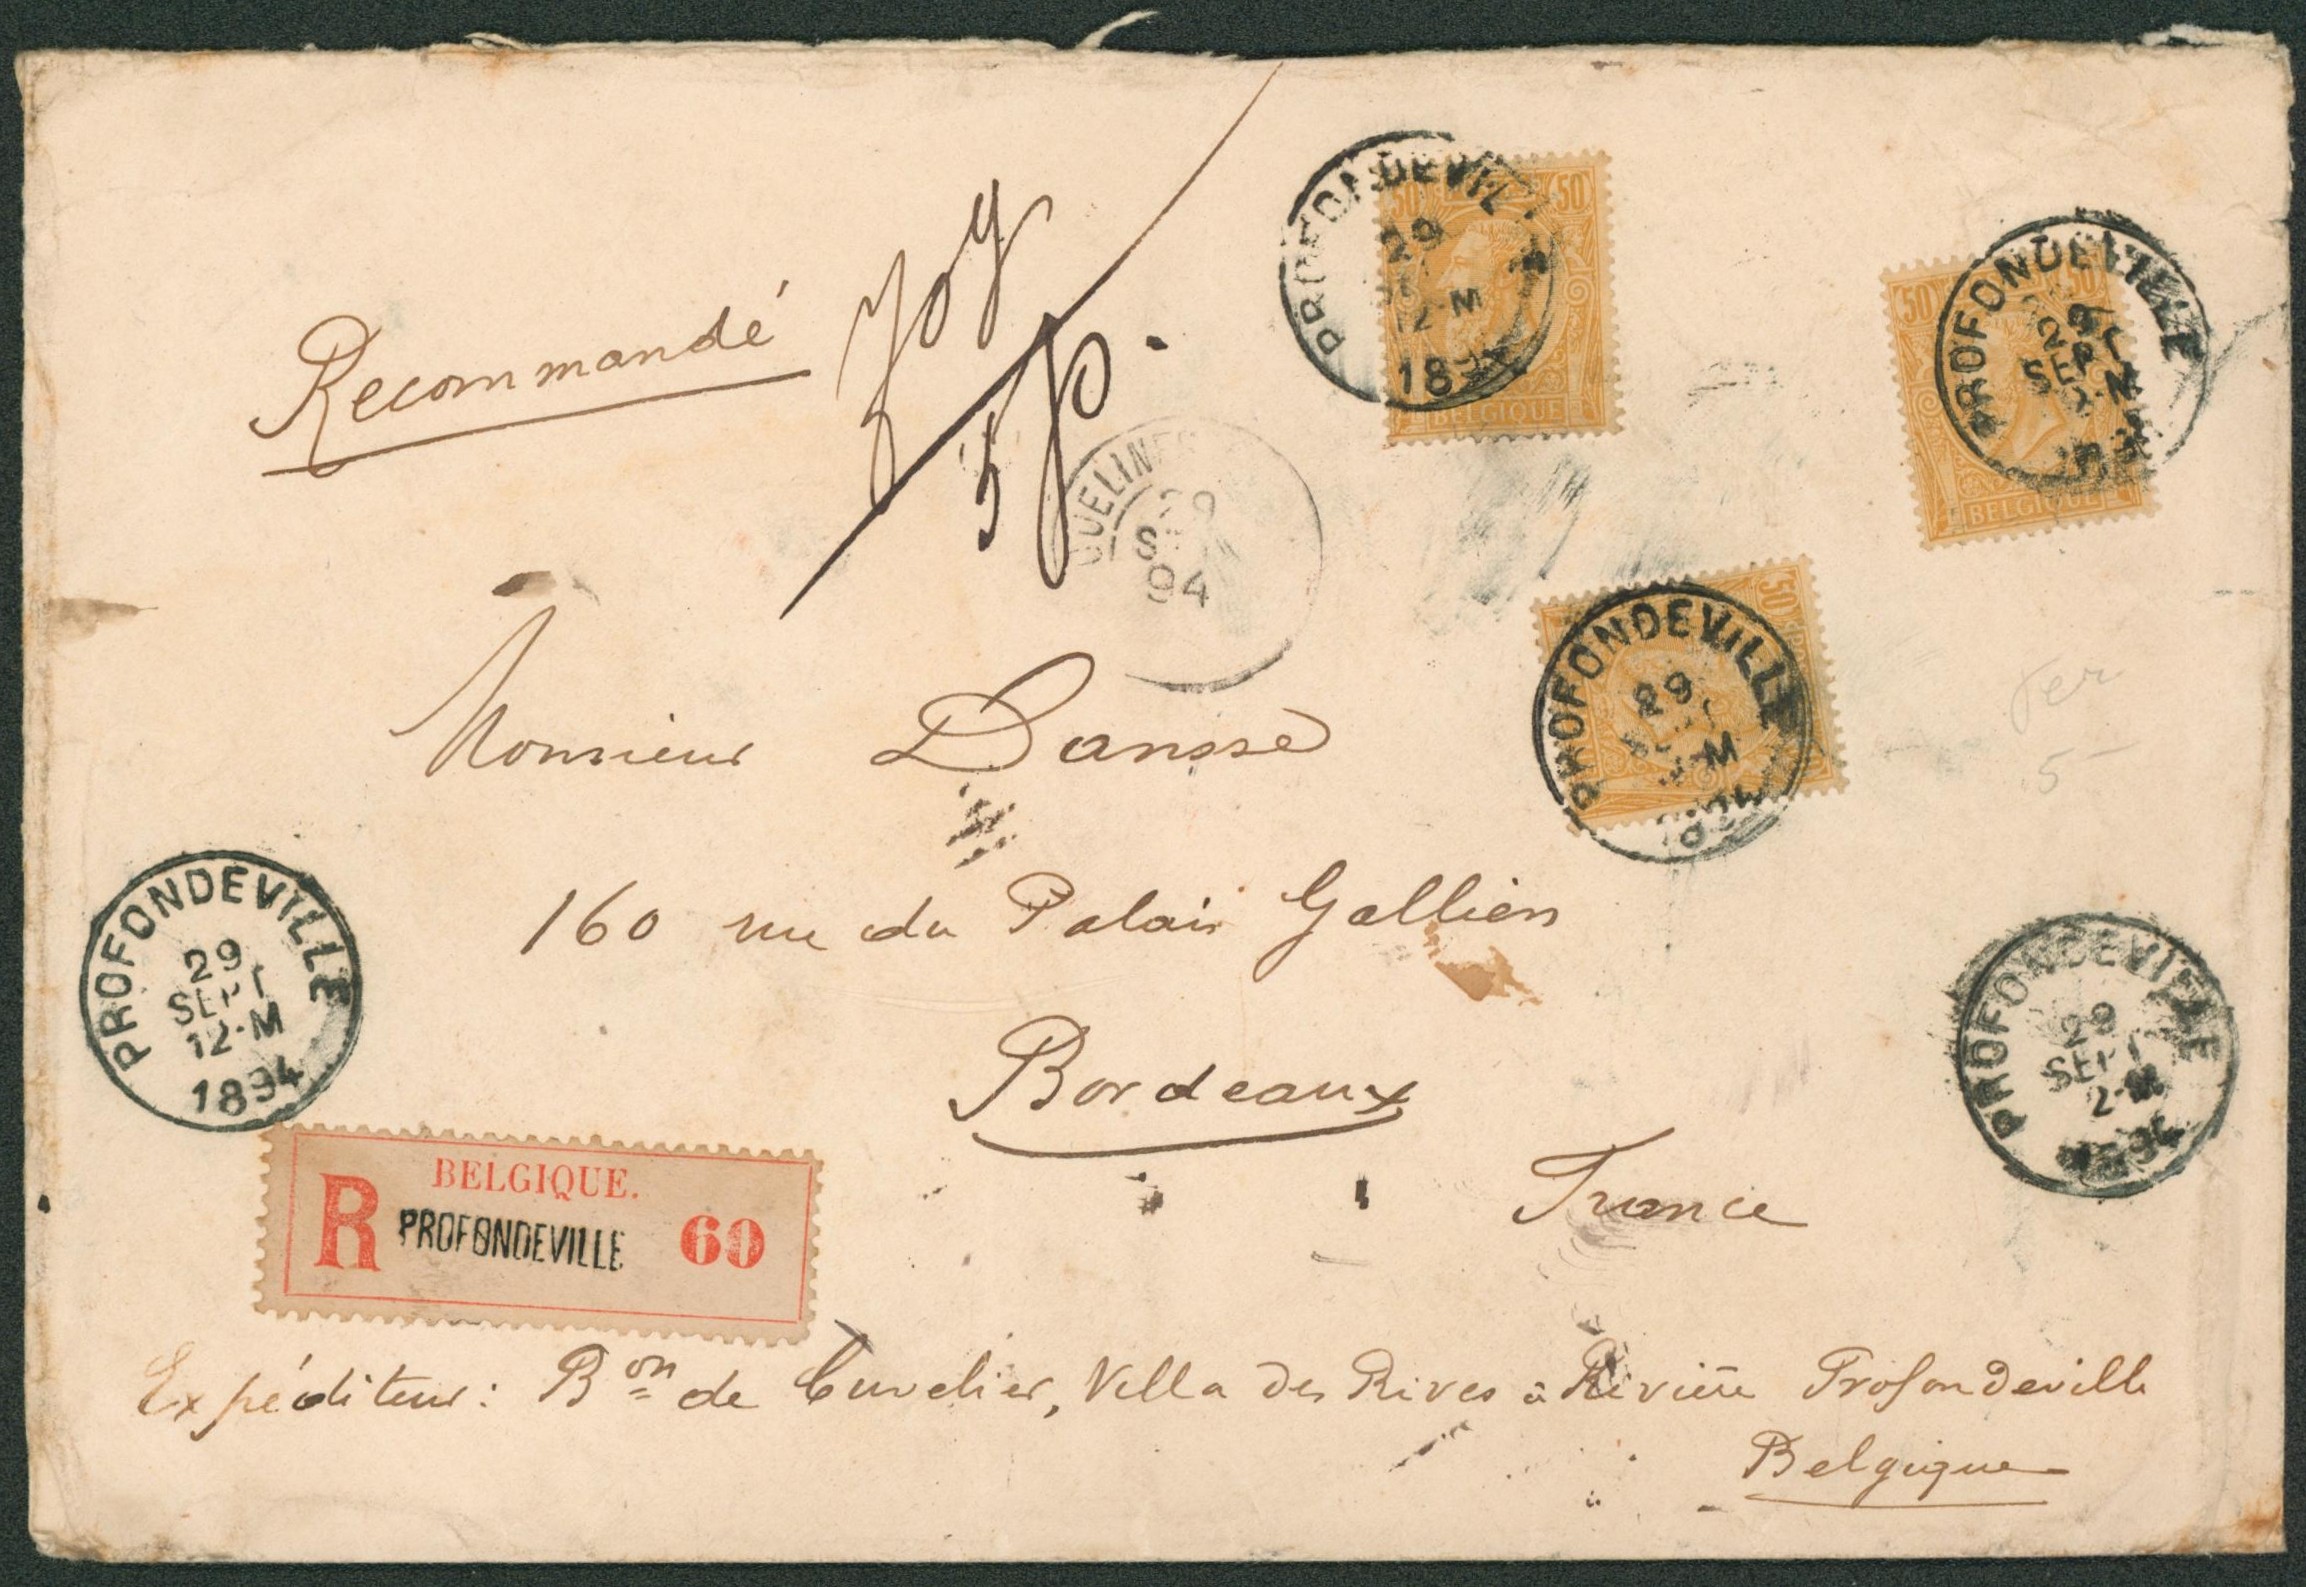 Recommandé
50
50
BELGIQUE
PROFONDEVILLE
29
12-M
50
50
BELGIQUE
PROFONDEVILLE
29
SEPT
50
PROFONDEVILLE
29
94
Ter
5-
Monsieur Dansse
160 rue du Palais Gallien
Bordeaux
France
PROFONDEVILLE
29
SEPT
12-M
1894
PROFONDEVILLE
29
SEPT
BELGIQUE.
R PROFONDEVILLE 60
Expéditeur: Bon de Cuvelier, Villa des Rives à Rivière Profondeville
Belgique